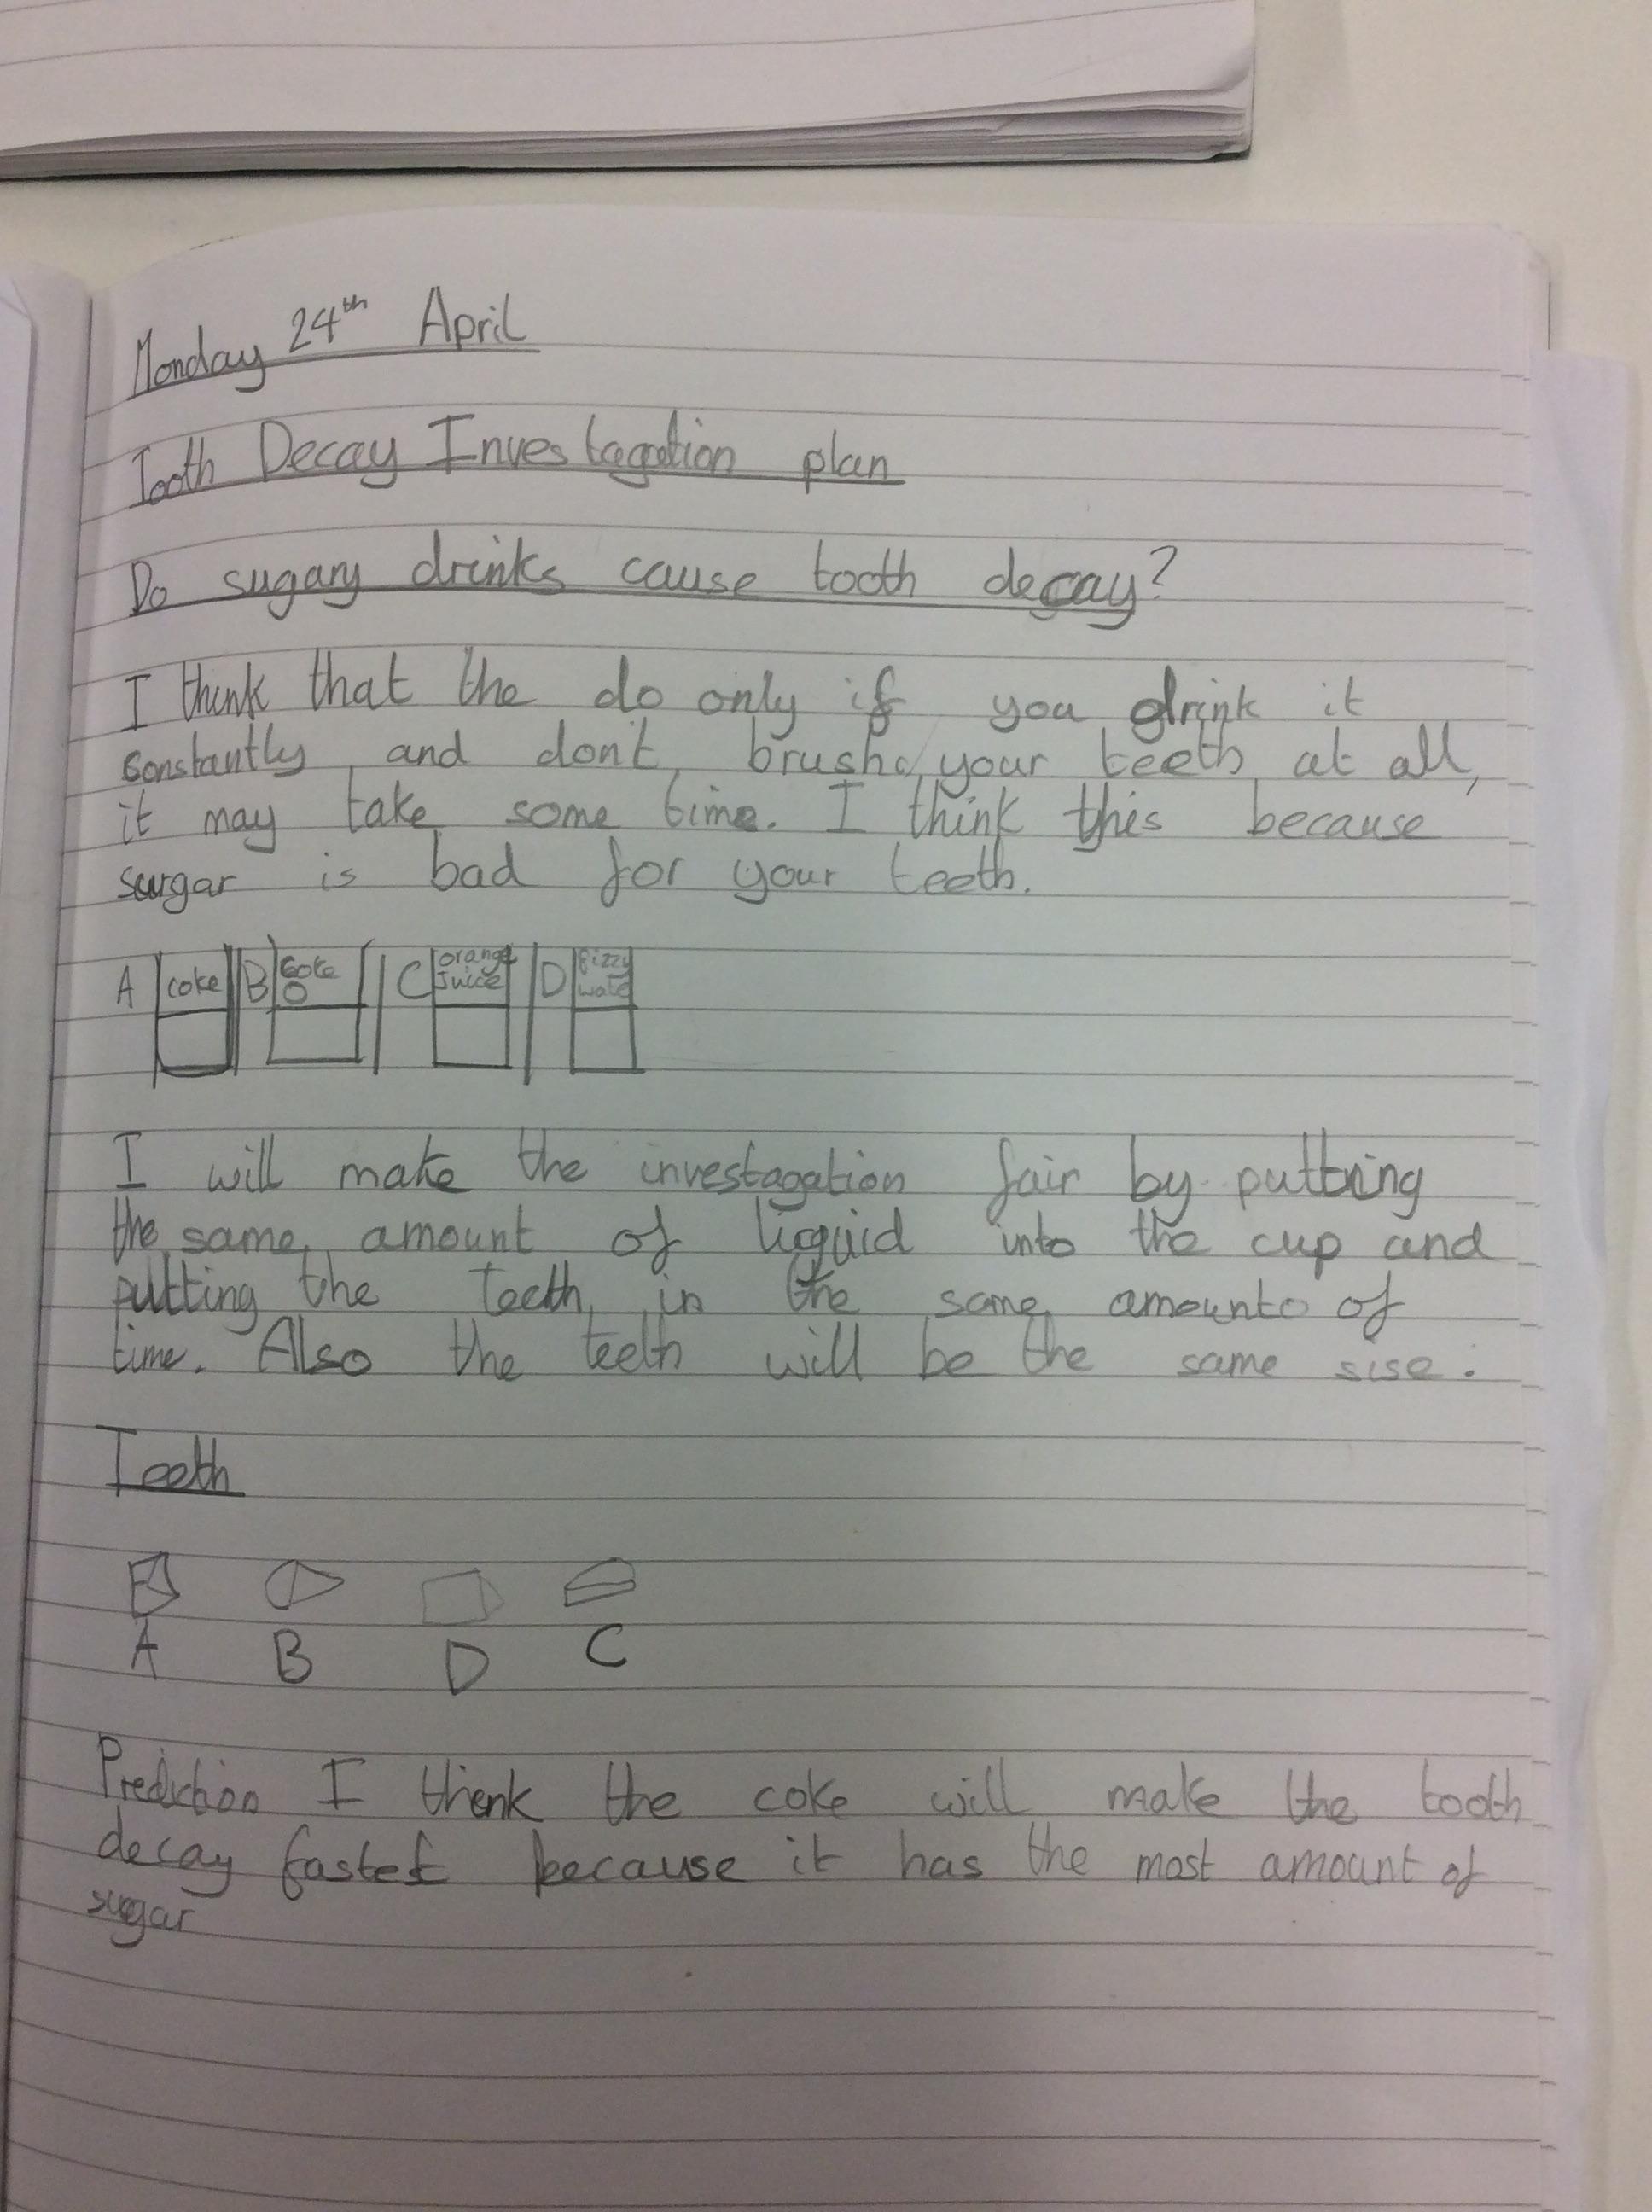 Monday 24th April
Tooth Decay Investagation plan
Do sugary drinks cause tooth decay?
I think that the do only if you drink it
constantly and dont brush your teeth at all,
it may take some time. I think this because
surgar is bad for your teeth.
A coke B coke O C orange Juice D fizzy water
I will make the investagation fair by puttning
the same amount of liquid into the cup and
putting the teeth in the same amounto of
time. Also the teeth will be the same sise.
Teeth
A B D C
Prediction I think the coke will make the tooth
decay fastest because it has the most amount of
sugar